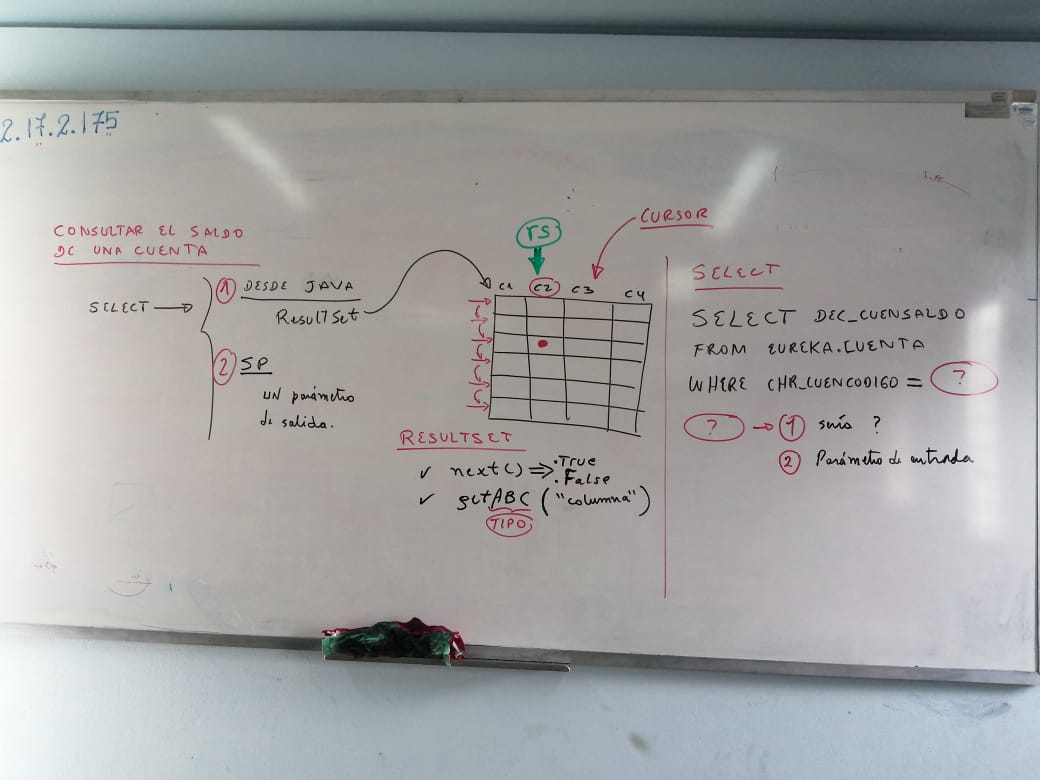 2.17.2.175
CONSULTAR EL SALDO
DE UNA CUENTA
SELECT
1 DESDE JAVA
ResultSet
2 SP
UN parámetro
de salida.
rs
CURSOR
C1 C2 C3 C4
RESULTSET
✓ next() ⇒ .True
.False
✓ getABC ("columna")
TIPO
SELECT
SELECT DEC_CUENSALDO
FROM EUREKA.CUENTA
WHERE CHR_CUENCODIGO = ?
? → 1 ?
2 Parámetro de entrada